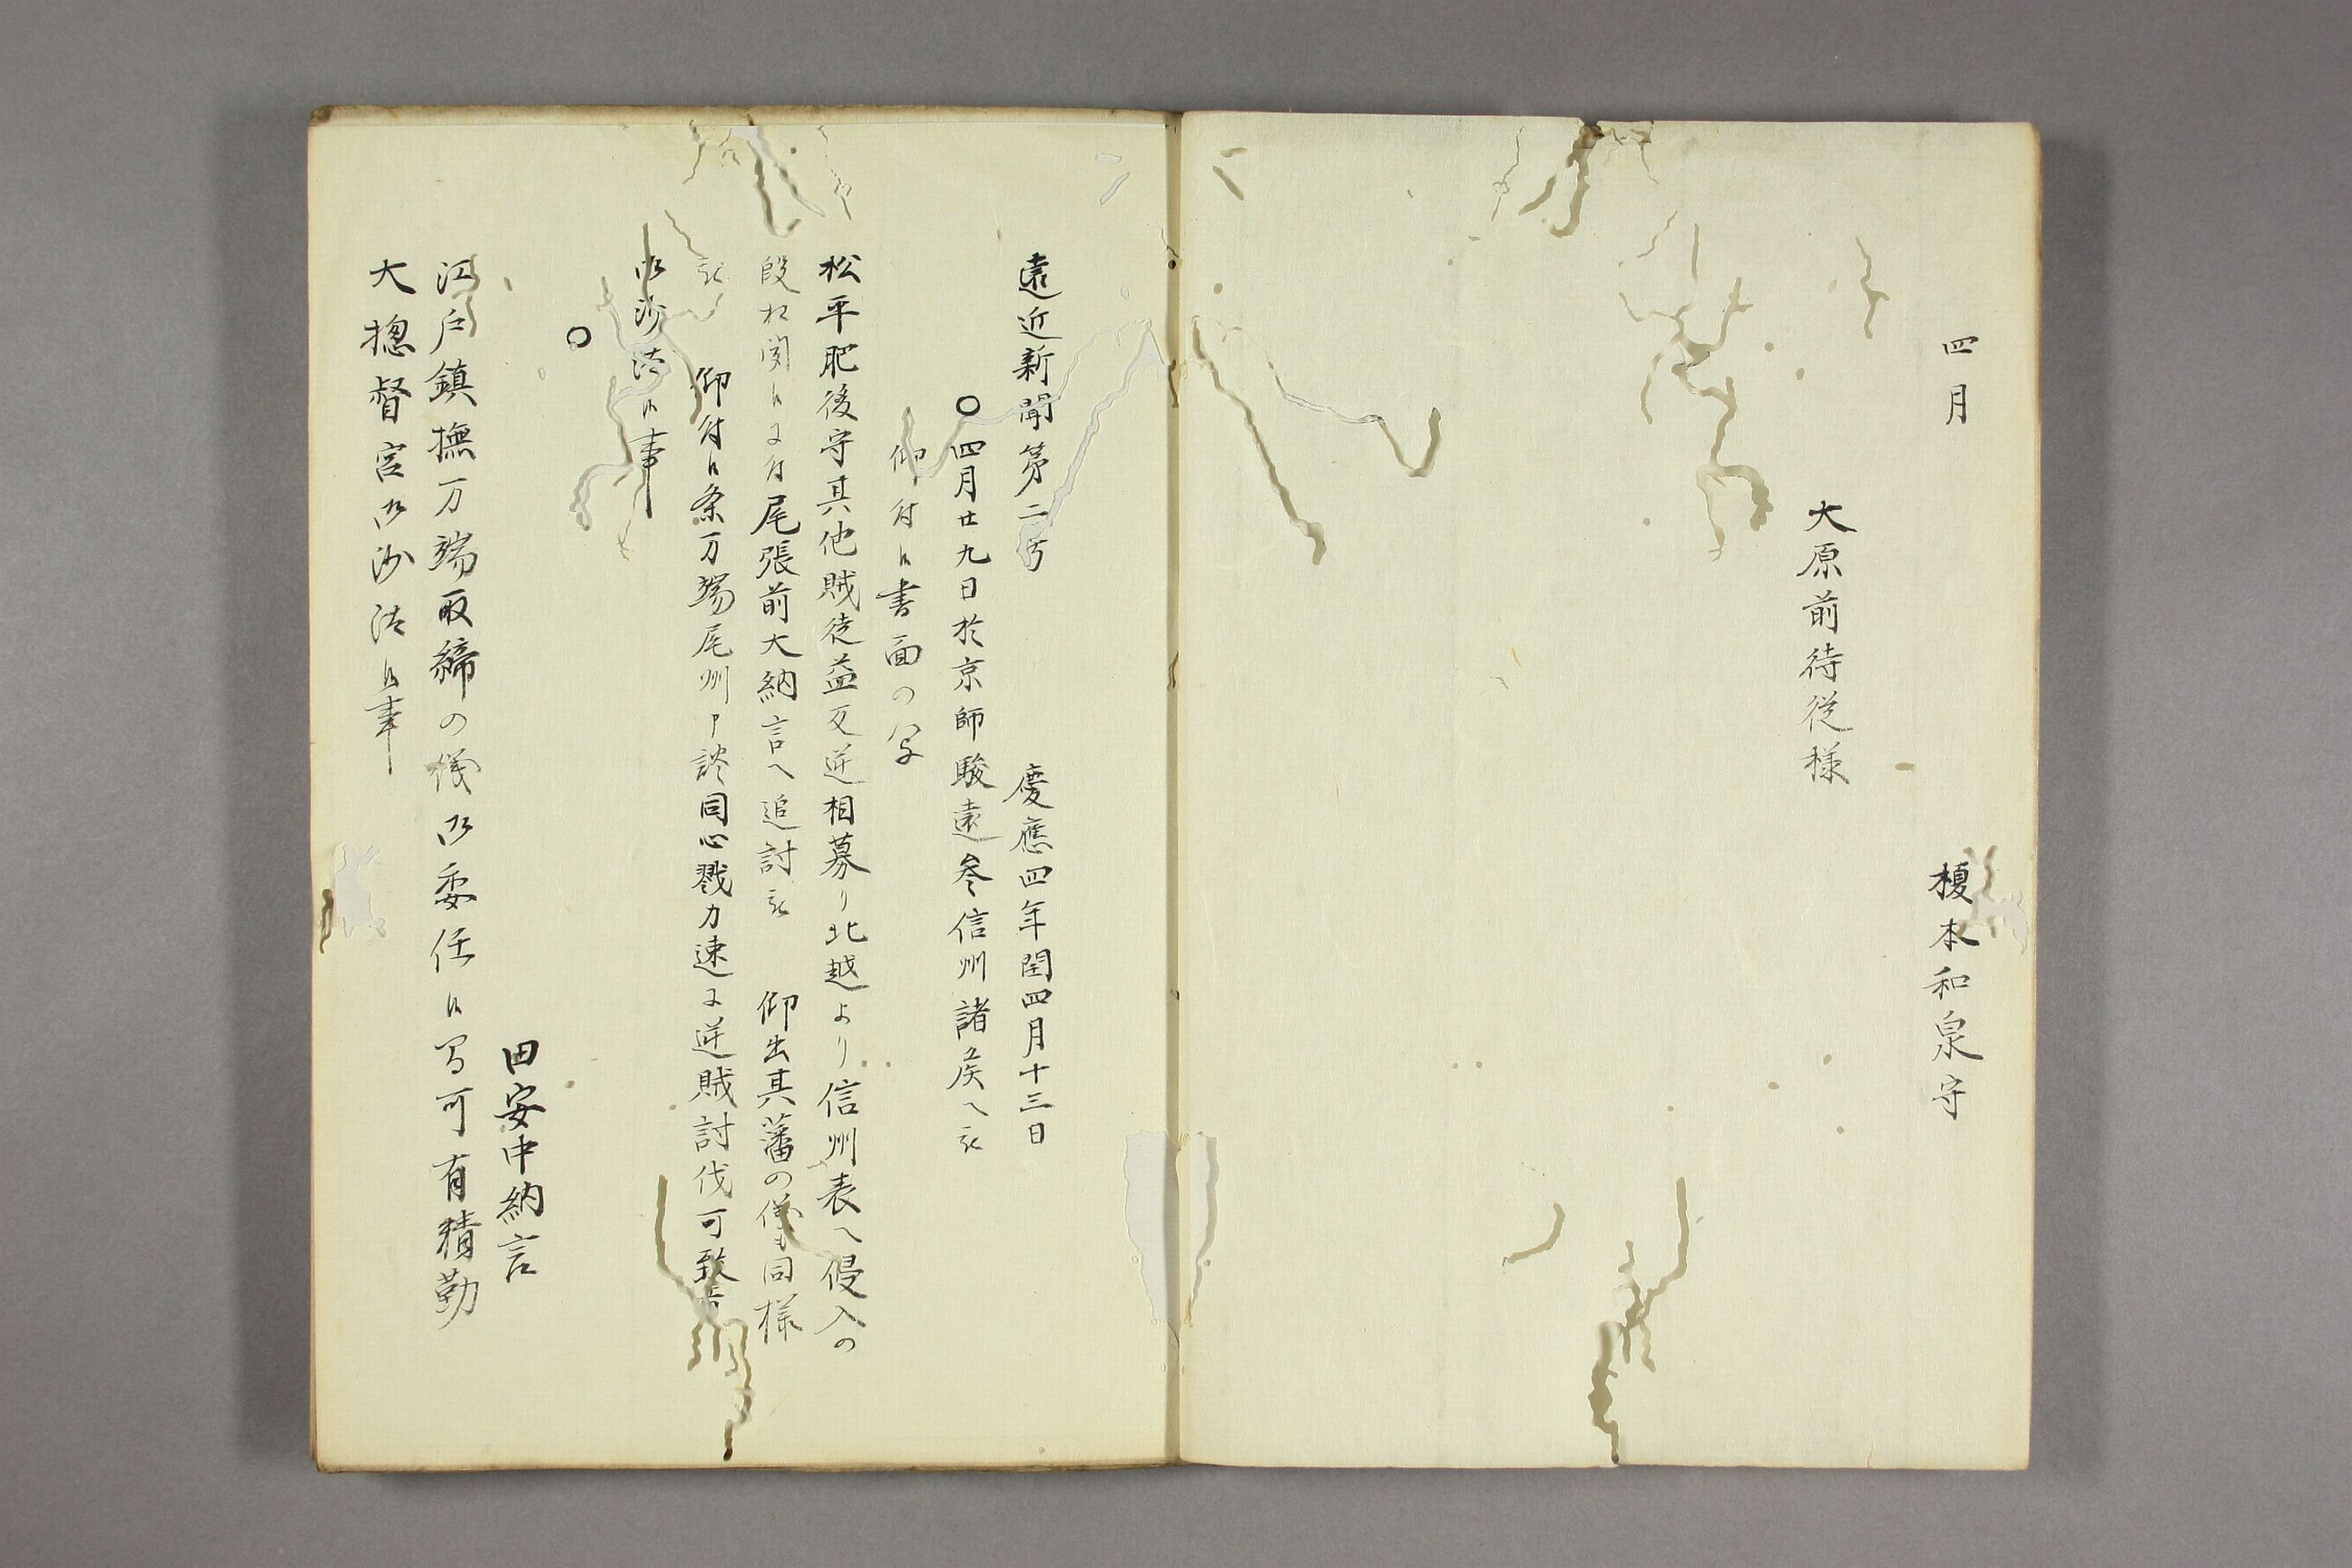 四月
榎本和泉守
大原前侍従様
遠近新聞第二号 慶應四年閏四月十三日
○四月廿九日於京師駿遠参信州諸侯へ被
仰付候書面の写
松平肥後守其他賊徒益反逆相募り北越より信州表へ侵入の
段相聞候に付尾張前大納言へ追討被 仰出其藩の儀も同様
被 仰付候条万端尾州申談同心戮力速に逆賊討伐可致旨
御沙汰候事
○
田安中納言
江戸鎮撫万端取締の儀御委任候間可有精勤
大総督宮御沙汰候事